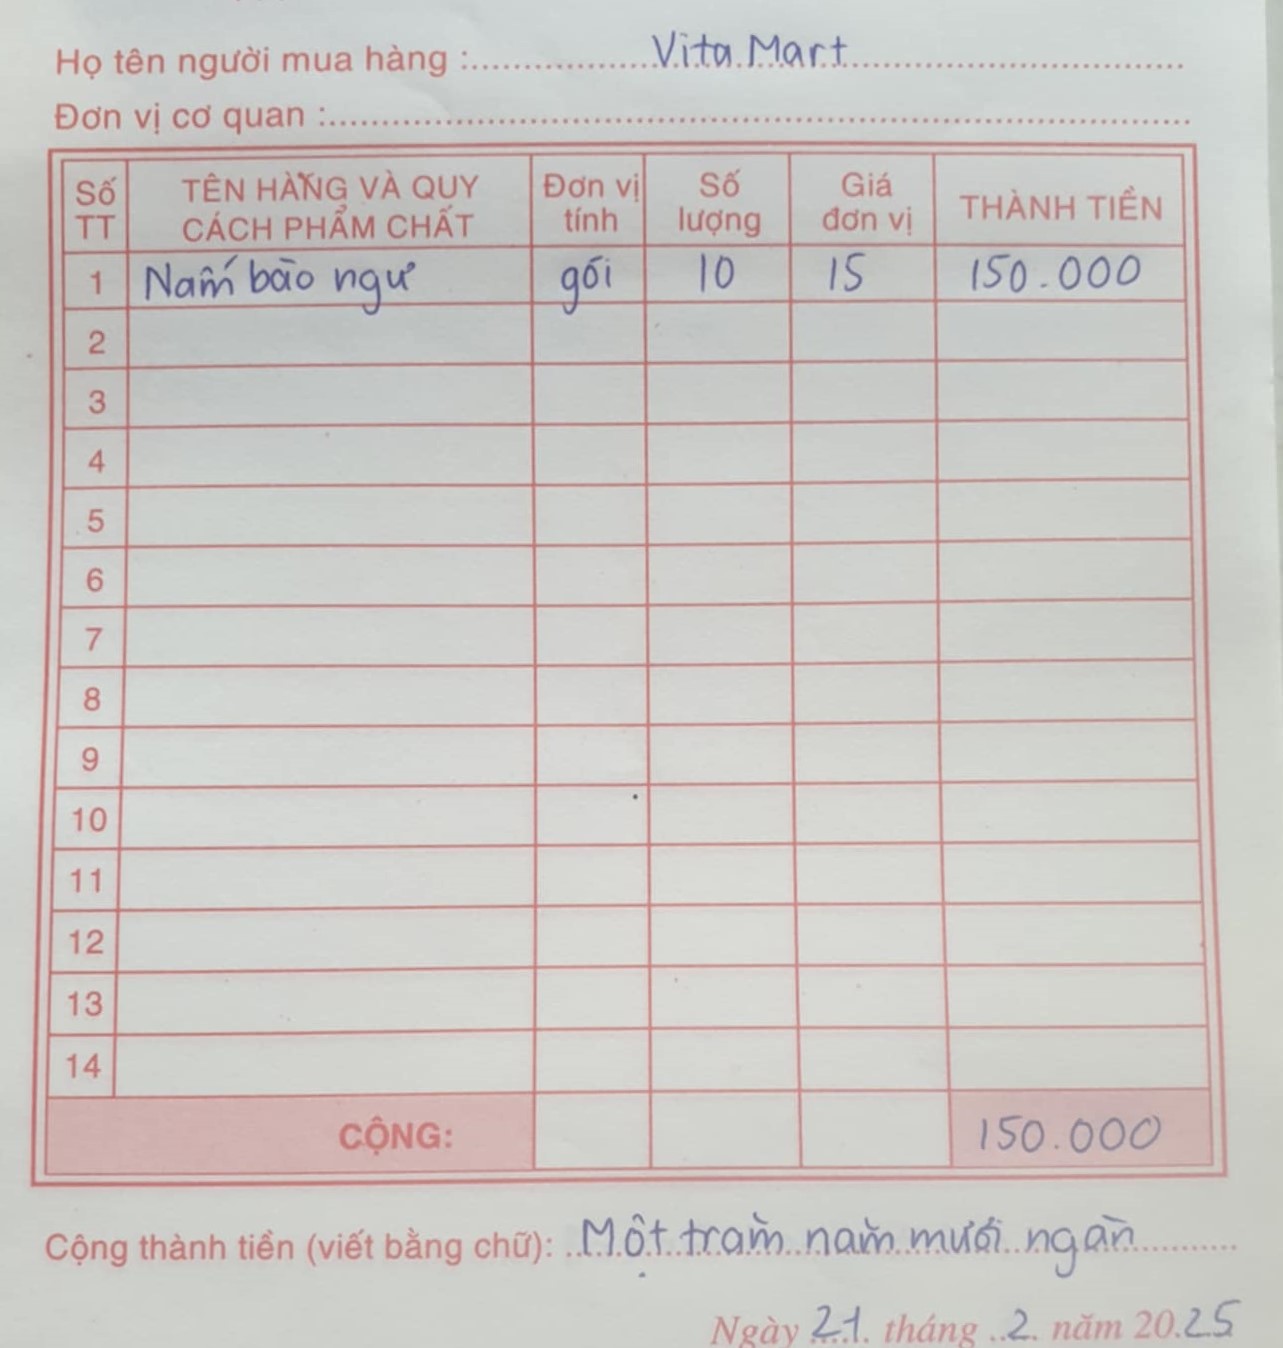 Họ tên người mua hàng : Vita Mart
Đơn vị cơ quan :
Số TT TÊN HÀNG VÀ QUY CÁCH PHẨM CHẤT Đơn vị tính Số lượng Giá đơn vị THÀNH TIỀN
1 Nấm bào ngư gói 10 15 150.000
2
3
4
5
6
7
8
9
10
11
12
13
14
CỘNG: 150.000
Cộng thành tiền (viết bằng chữ): Một trăm năm mươi ngàn
Ngày 21 tháng 2 năm 2025